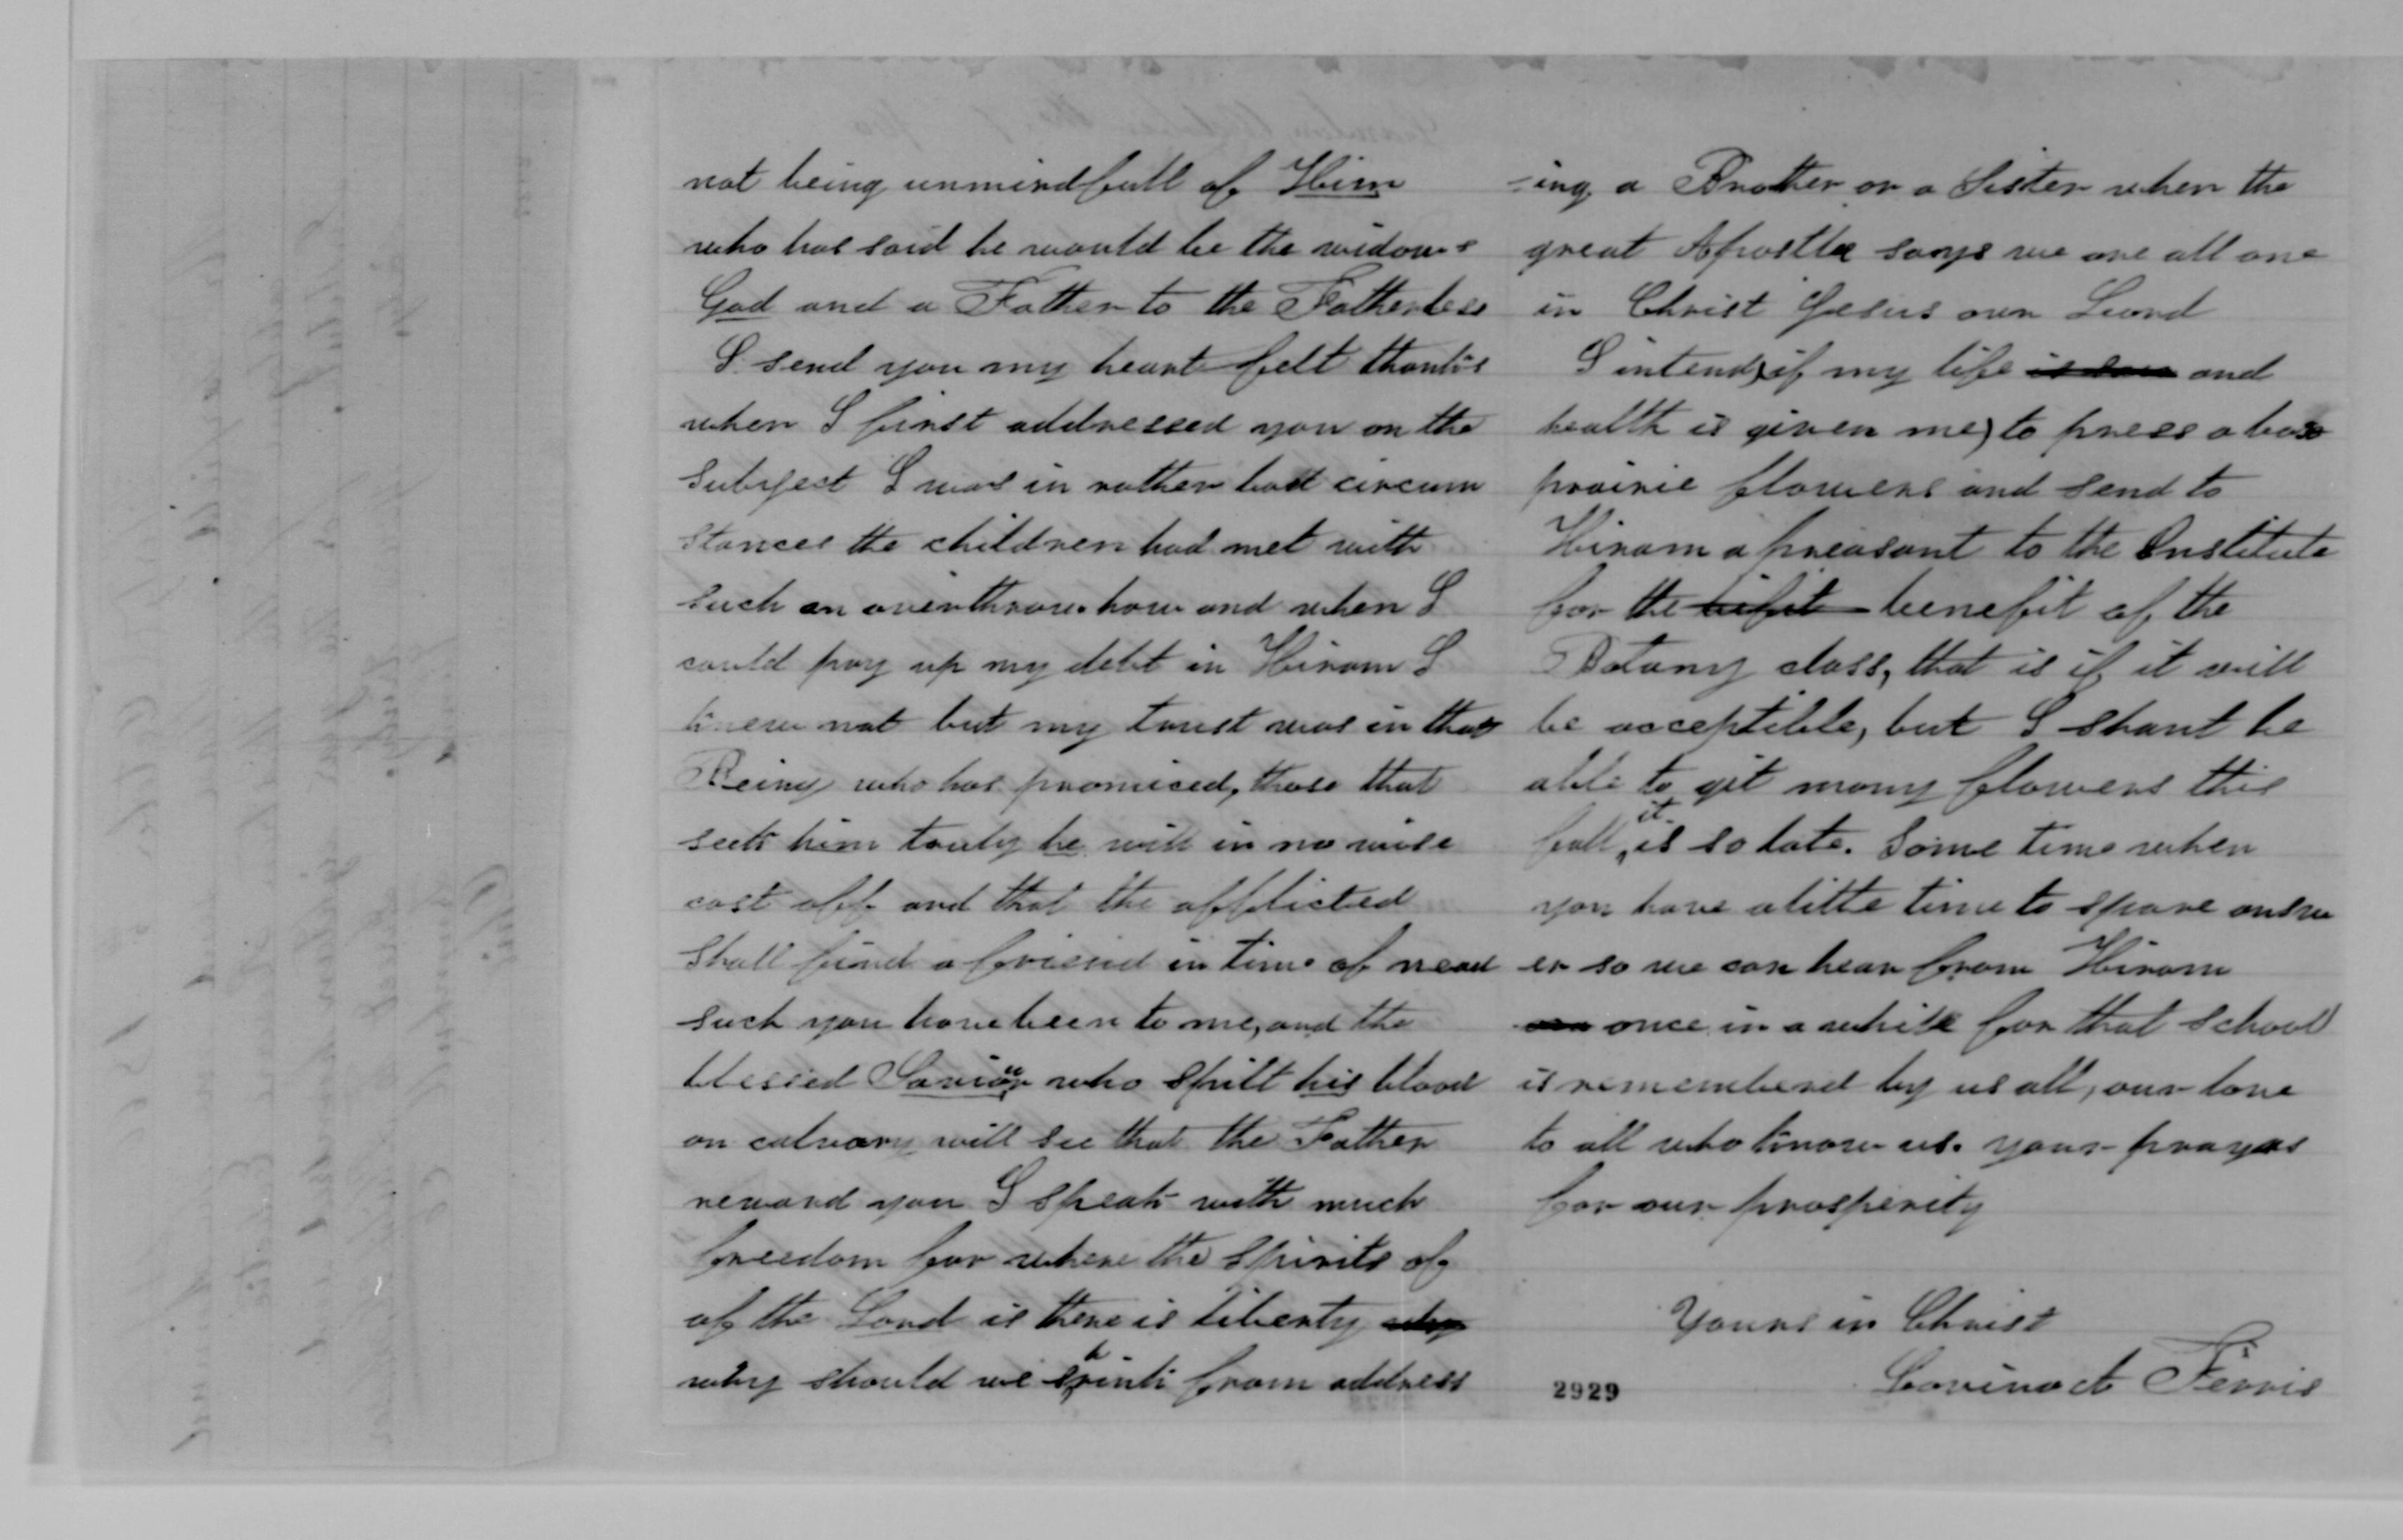 not being unmindfull of Him
who has said he would be the widows
God and a Father to the Fatherless
I send you my heart felt thanks
when I first addressed you on the
Subject I was in rather bad circum
stances the children had met with
such an overthrow how and when I
could pay up my debt in Hiram I
knew not but my trust was in that
Being who has promised, those that
seek him truly he will in no wise
cast off and that the afflicted
Shall find a friend in time of need
such you have been to me, and the
blessed Saviour who spilt his blood
on calvary will see that the Father
reward you I speak with much
freedom for where the spirits of
of the Lord is there is liberty why
why should we shrink from address
-ing a Brother or a Sister when the
great Apostle says we are all one
in Christ Jesus our Lord
I intend (if my life and
health is given me) to press a box
prairie flowers and send to
Hiram a preasant to the Institute
for the benefit of the
Botany class, that is if it will
be acceptible, but I shant be
able to git many flowers this
fall, it is so late. Some time when
you have a little time to spare answ
er so we can hear from Hiram
once in a while for that school
is rememberd by us all, our love
to all who know us. your prayers
for our prosperity
Yours in Christ
Ferris
2929